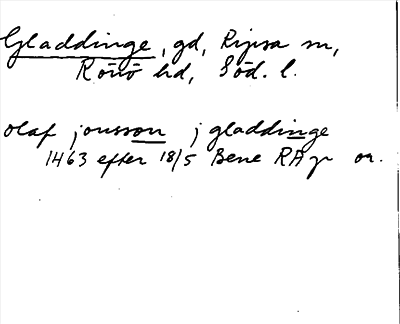 Gladdinge, gd, Ripsa sn,
Rönö hd, Söd. l.
olaf jonsson j gladdinge
1463 efter 18/5 Bene RAp or.